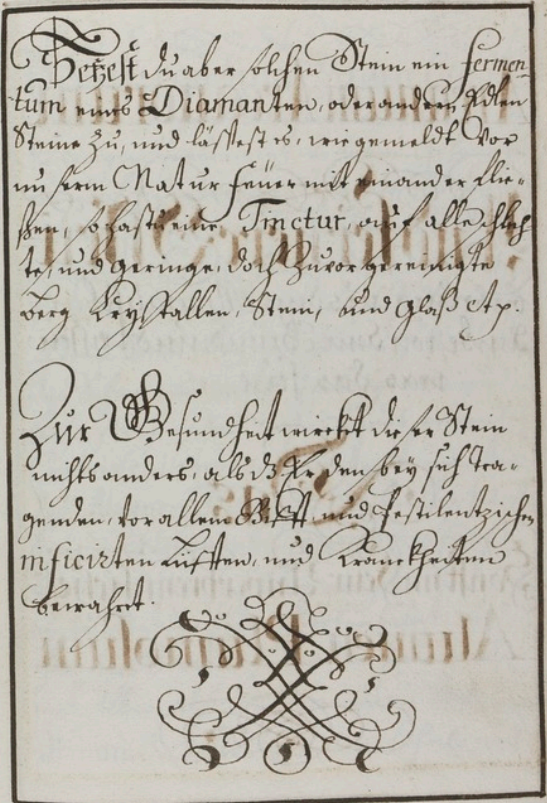 Setzest du aber solchen Stein ein fermen-
tum eines Diamanten, oder andern Edlen
Steine zu, und lässest es, wie gemeldt vor
unserm Natur feuer mit einander flie-
ßen, so hastu eine Tinctur, auf alle schlech-
te, und geringe, doch zuvor gereinigte
Berg Crystallen, Stein, und Glaß etc.
Zur Gesundheit wirckt dieser Stein
nichts anders, als dz Er den bey sich Tra-
genden, vor allem Gifft, und Pestilentzischen
inficirten Lüfften, und Kranckheiten
bewahret.